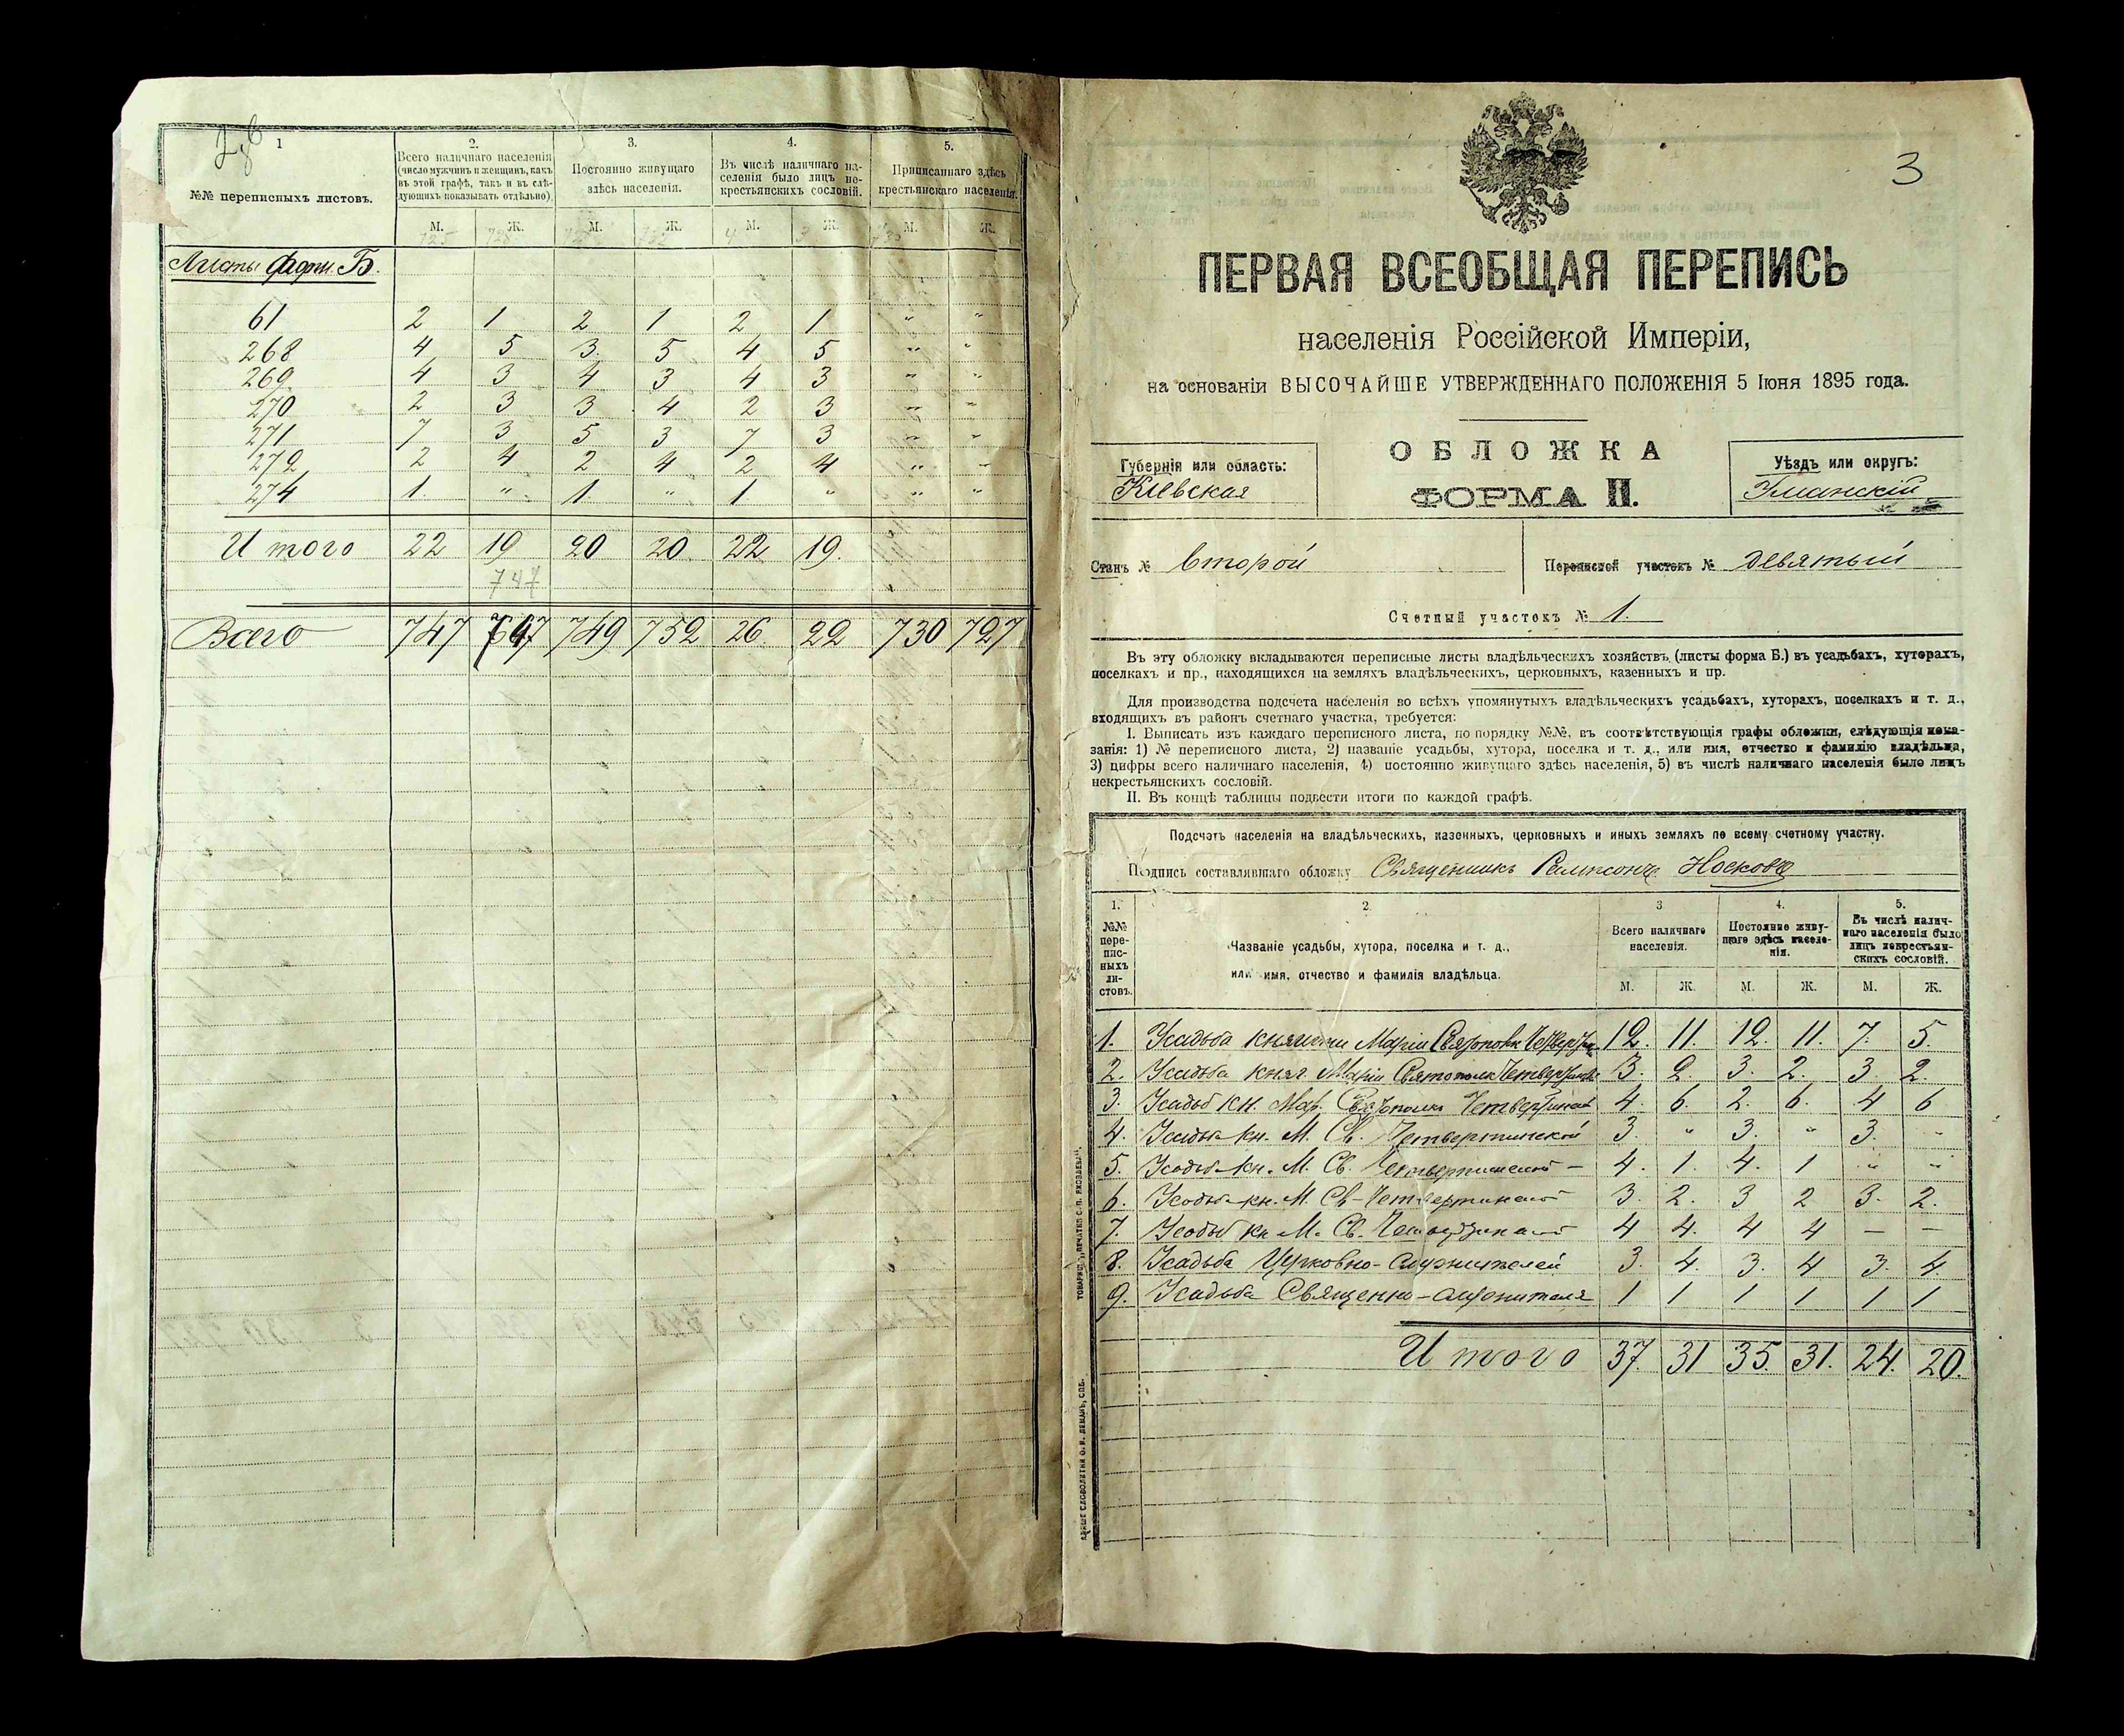 1
№№ переписныхъ листовъ.
2.
Всего наличнаго населенія
(число мужчинъ и женщинъ, какъ
въ этой графѣ, такъ и въ слѣ-
дующихъ показывать отдѣльно)
3.
Постоянно живущаго
здѣсь населенія.
4.
Въ числѣ наличнаго на-
селенія было лицъ не-
крестьянскихъ сословій.
5.
Приписаннаго здѣсь
крестьянскаго населенія.
М. Ж. М. Ж. М. Ж. М. Ж.
Листы форм. Б.
61 2 1 2 1 2 1 " "
268 4 5 3. 5 4 5 " "
269 4 3 4 3 4 3 " "
270 2 3 3 4 2 3 " "
271 7 3 5 3 7 3 " "
272 2 4 2 4 2 4 " "
274 1. " 1. " 1 " " "
Итого 22 19 20 20 22 19.
747
Всего 747 749 752 26. 22 730 727
3
ПЕРВАЯ ВСЕОБЩАЯ ПЕРЕПИСЬ
населенія Россійской Имперіи,
на основаніи ВЫСОЧАЙШЕ УТВЕРЖДЕННАГО ПОЛОЖЕНІЯ 5 Іюня 1895 года.
Губернія или область:
Кіевская
ОБЛОЖКА
ФОРМА II.
Уѣздъ или округъ:
Уманскій
Станъ № второй
Переписной участокъ № девятый
Счетный участокъ № 1.
Въ эту обложку вкладываются переписные листы владѣльческихъ хозяйствъ (листы форма Б.) въ усадьбахъ, хуторахъ,
поселкахъ и пр., находящихся на земляхъ владѣльческихъ, церковныхъ, казенныхъ и пр.
Для производства подсчета населенія во всѣхъ упомянутыхъ владѣльческихъ усадьбахъ, хуторахъ, поселкахъ и т. д.,
входящихъ въ районъ счетнаго участка, требуется:
I. Выписать изъ каждаго переписного листа, по порядку №№, въ соотвѣтствующія графы обложки, слѣдующія пока-
занія: 1) № переписного листа, 2) названіе усадьбы, хутора, поселка и т. д., или имя, отчество и фамилію владѣльца,
3) цифры всего наличнаго населенія, 4) постоянно живущаго здѣсь населенія, 5) въ числѣ наличнаго населенія было лицъ
некрестьянскихъ сословій.
II. Въ концѣ таблицы подвести итоги по каждой графѣ.
Подсчетъ населенія на владѣльческихъ, казенныхъ, церковныхъ и иныхъ земляхъ по всему счетному участку.
Подпись составлявшаго обложку Священникъ Сампсонъ Носковъ
1.
№№
пере-
пис-
ныхъ
ли-
стовъ.
2
Названіе усадьбы, хутора, поселка и т. д.,
или имя, отчество и фамилія владѣльца.
3
Всего наличнаго
населенія.
4.
Постоянно живу-
щаго здѣсь населе-
нія.
5.
Въ числѣ налич-
наго населенія было
лицъ некрестьян-
скихъ сословій.
М. Ж. М. Ж. М. Ж.
1. Усадьба княгини Маріи 12. 11. 12. 11. 7. 5.
2. Усадьба княг. Маріи Святополк 3. 2. 3. 2. 3. 2.
3. Усадьб кн. Мар. Святополк Четвертинской 4. 6. 2. 6. 4 6
4. Усадьба кн. М. Св. Четвертинской 3. " 3. " 3. "
5. Усадьба кн. М. Св. Четвертинской – 4. 1. 4. 1 " "
6. Усадьба кн. М. Св. Четвертинской 3. 2. 3 2 3. 2.
7. Усадьб кн М. Св. Четвертинской 4 4. 4 4 — —
8. Усадьба Церковно-служителей 3. 4. 3. 4 3. 4.
9. Усадьба Священно-служителя 1 1 1 1 1 1
Итого 37. 31 35. 31. 24. 20.